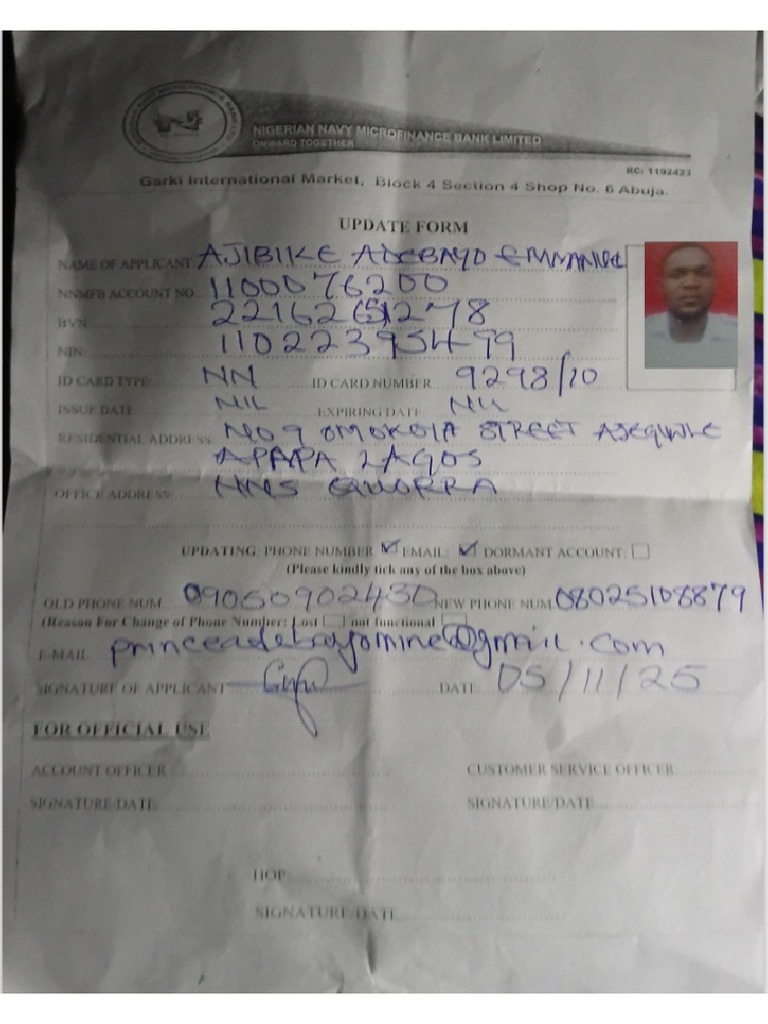 NIGERIAN NAVY MICROFINANCE BANK LIMITED
ONWARD TOGETHER
RC: 1192423
Garki International Market, Block 4 Section 4 Shop No. 6 Abuja.
UPDATE FORM
NAME OF APPLICANT AJIBIKE ADEBAYO EMMANUEL
NNMFB ACCOUNT NO 1100076200
BVN 22162651278
NIN 11022395499
ID CARD TYPE: NN ID CARD NUMBER 9298/20
ISSUE DATE NIL EXPIRING DATE NIL
RESIDENTIAL ADDRESS: NO 9 STREET
APAPA LAGOS
OFFICE ADDRESS: NNS QUORRA
UPDATING: PHONE NUMBER ✓ EMAIL: ✓ DORMANT ACCOUNT: ☐
(Please kindly tick any of the box above)
OLD PHONE NUM 09050902430 NEW PHONE NUM 08025108879
(Reason For Change of Phone Number: Lost ☐ not functional ☐
E-MAIL princeadebayomine@gmail.com
SIGNATURE OF APPLICANT DATE 05/11/25
FOR OFFICIAL USE
ACCOUNT OFFICER CUSTOMER SERVICE OFFICER
SIGNATURE/DATE SIGNATURE/DATE
HOP
SIGNATURE/DATE